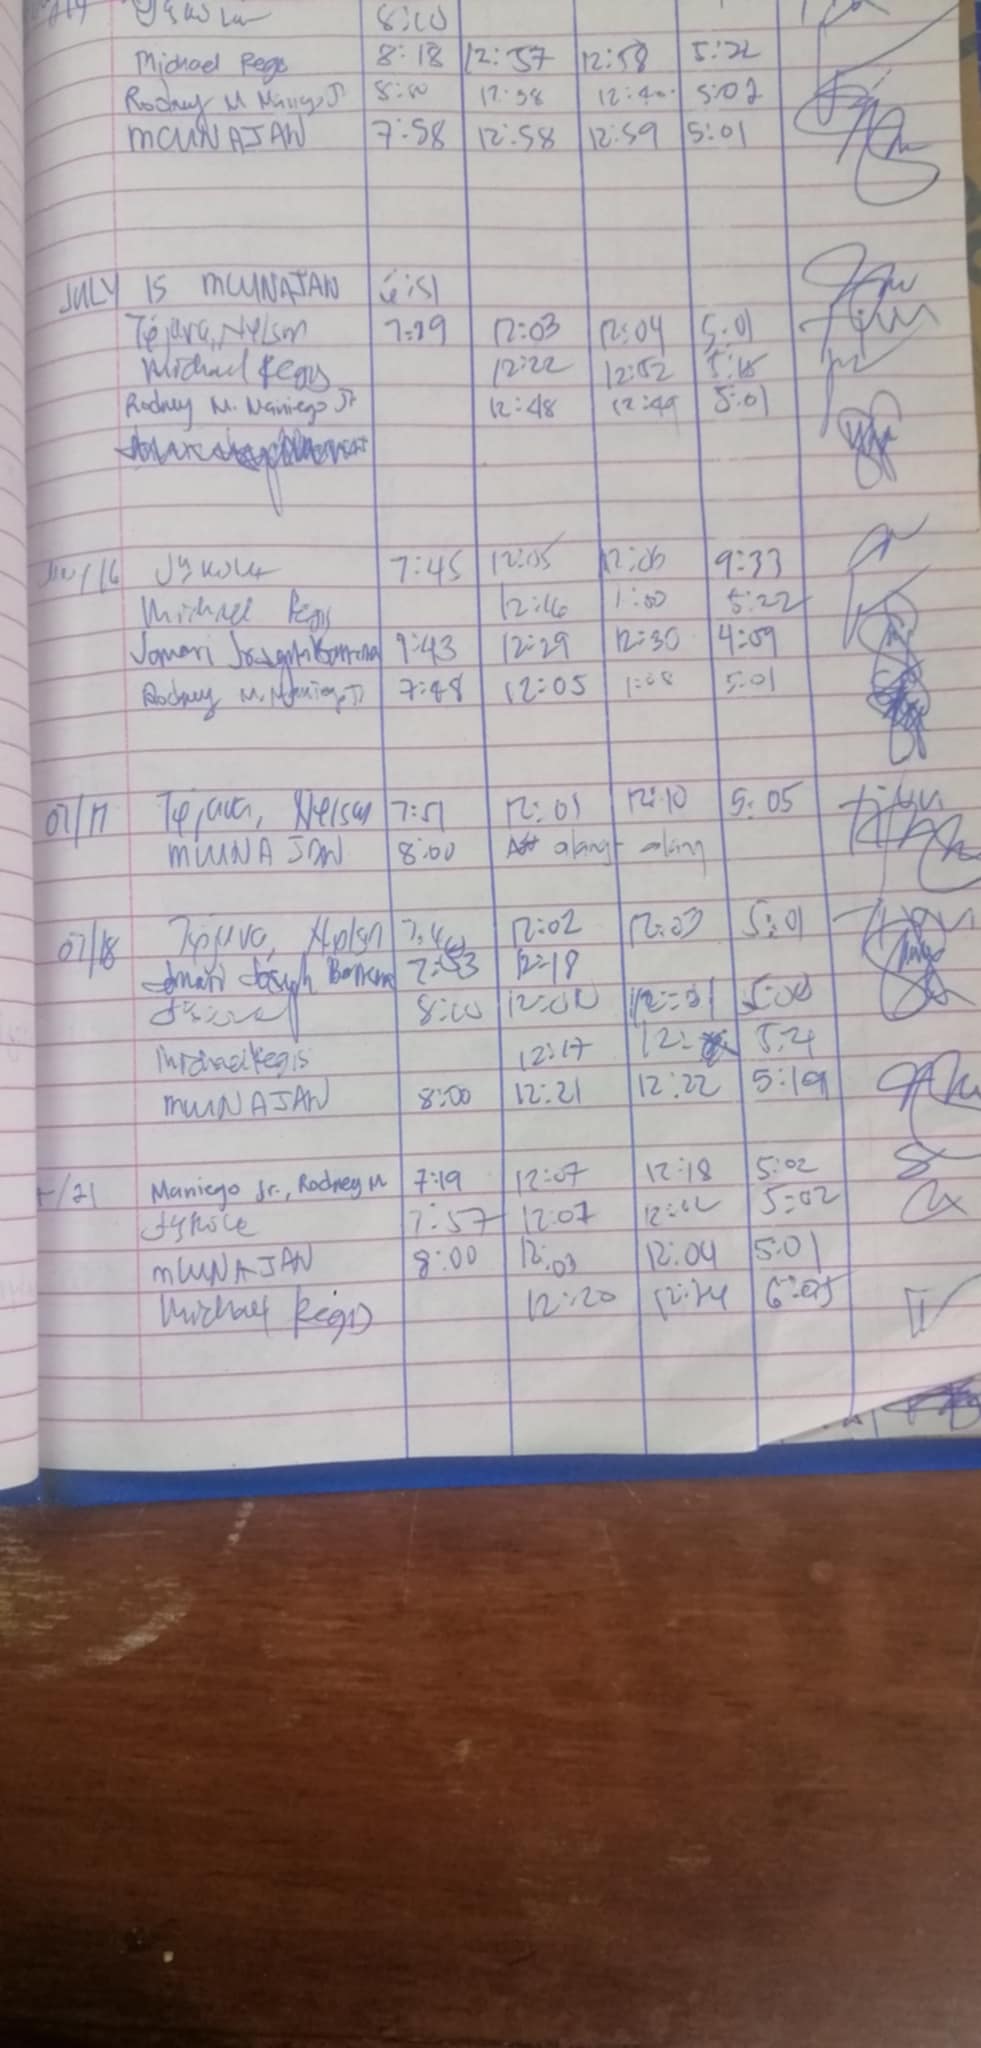 8:00
Michael Regis 8:18 12:57 12:58 5:22
Rodney M Maniego Jr 8:00 12:38 12:40 5:02
MCUNAJAN 7:58 12:58 12:59 5:01
JULY 15 MCUNAJAN 6:51
Tejara, Nelson 7:29 12:03 12:04 5:01
Michael Regis 12:22 12:52 5:15
Rodney M. Maniego Jr 12:48 12:49 5:01
7:45 12:05 12:06 9:33
Michael Regis 12:16 1:00 5:22
Jomari Joseph 9:43 12:29 12:30 4:09
Rodney M. Maniego Jr 7:48 12:05 1:08 5:01
07/17 Tejara, Nelson 7:51 12:01 12:10 5:05
MCUNAJAN 8:00 alang - alang
07/18 Tejara, Nelson 12:02 12:03 5:01
Jomari Joseph 7:53 12:18
8:00 12:00 12:01 5:00
Michael Regis 12:17 12: 5:21
MCUNAJAN 8:00 12:21 12:22 5:19
/21 Maniego Jr., Rodney M 7:19 12:07 12:18 5:02
7:57 12:07 12:12 5:02
MCUNAJAN 8:00 12:03 12:04 5:01
Michael Regis 12:20 12:24 6:05